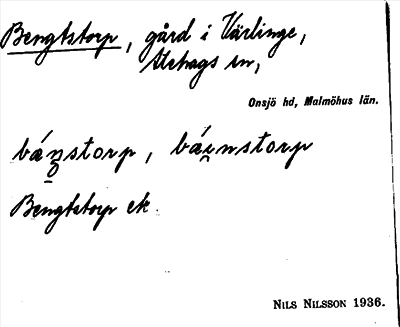 Bengtstorp, gård i Värlinge,
Stehags sn,
Onsjö hd, Malmöhus län.
báŋstorp, báinstorp
Bengtstorp ek.
NILS NILSSON 1936.